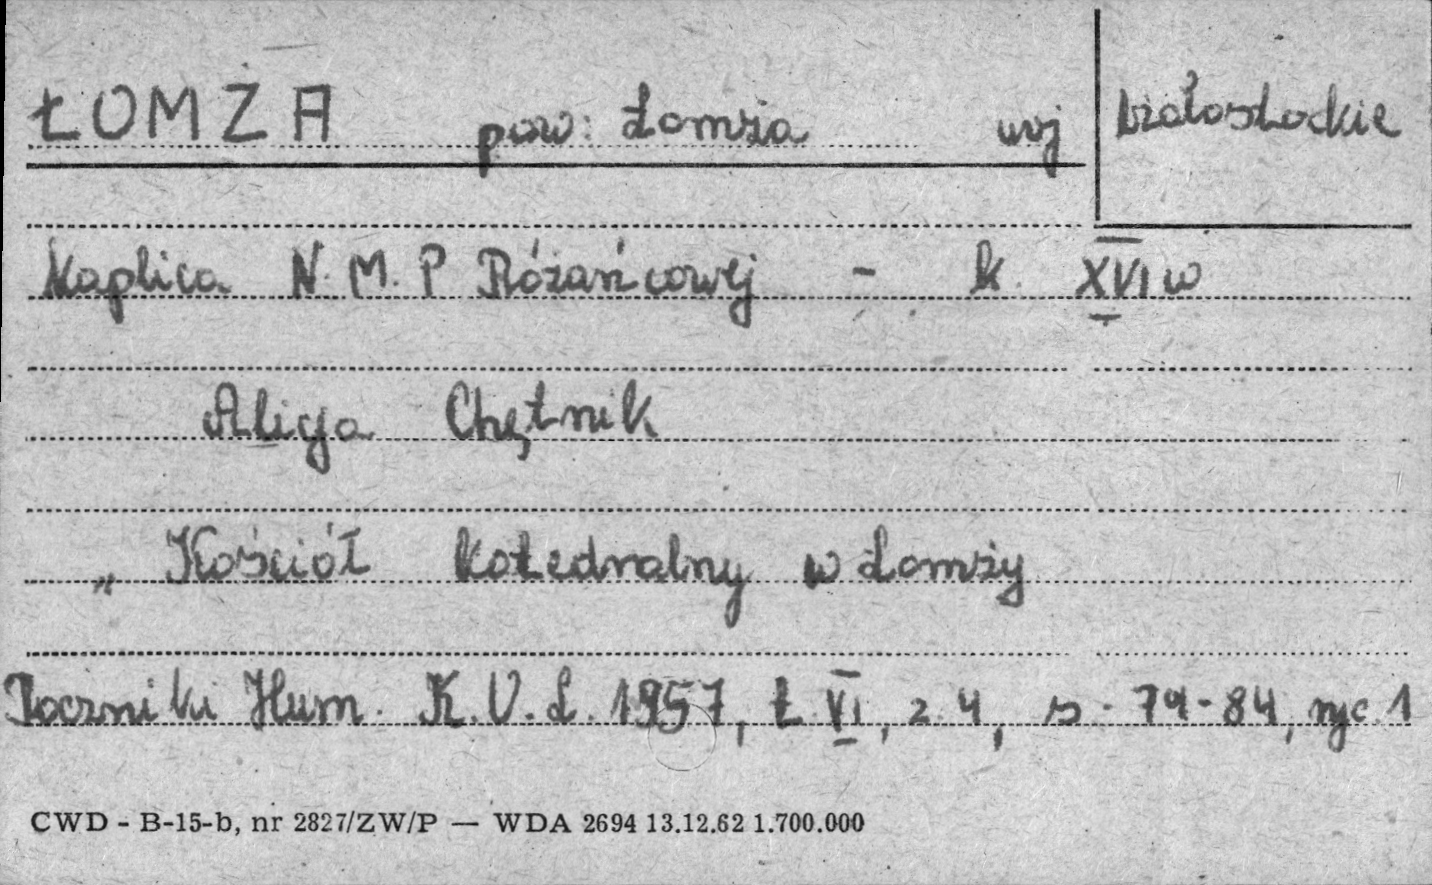 ŁOMŻA pow: Łomża woj białostockie
Kaplica N.M.P Różańcowej - k. XVI w
Alicja Chętnik
„Kościół katedralny w Łomży
Roczniki Hum. K.U.L. 1957, t. VI, z. 4, s. 79-84, ryc. 1
CWD - B-15-b, nr 2827/ZW/P — WDA 2694 13.12.62 1.700.000